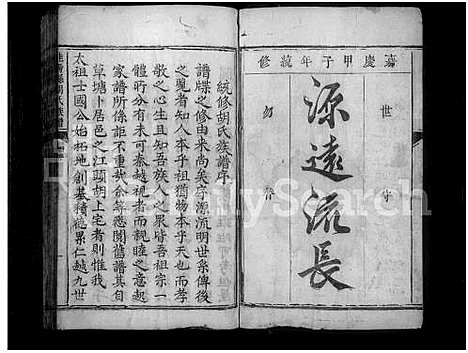 嘉慶甲子年統修
世守
源遠流長
勿替
統修胡氏族譜序
譜牒之修由來尚矣序源流明世系俾後
之覽者知人本乎祖猶物本乎天也而孝
敬之心生且知吾族人之衆皆吾祖宗一
體所分而未可秦越視者而親睦之意起
家譜所係詎不重哉余等悉閱舊譜其自
草塘卜居邑之江頭胡上宅者則惟我
太祖士國公始拓地創基積累仁越九世
胡氏族譜
FamilySearch